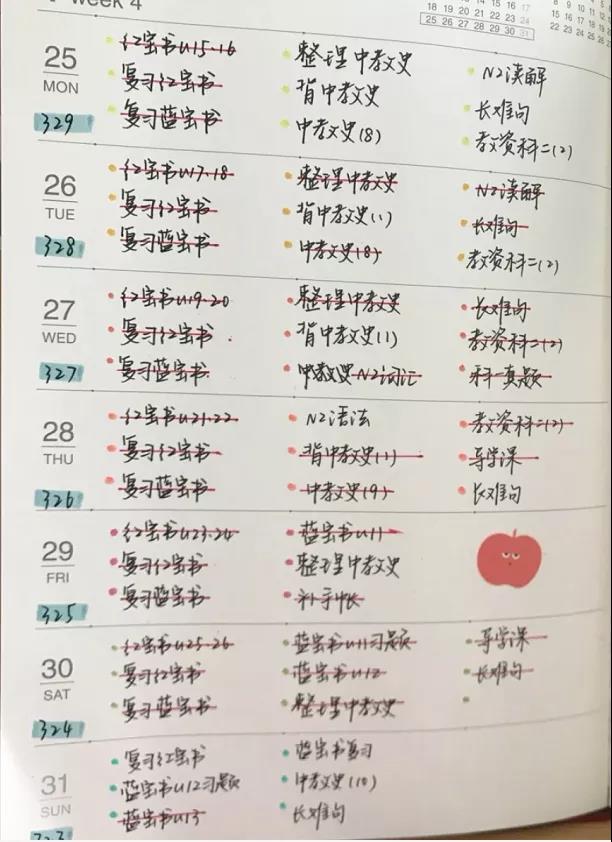 week 4
18 19 20 21 22 23 24
25 26 27 28 29 30 31
25
MON
329
红宝书U15·16
复习红宝书
复习蓝宝书
整理中教史
背中教史
中教史(8)
N2读解
长难句
教资科二(2)
26
TUE
328
红宝书U17·18
复习红宝书
复习蓝宝书
整理中教史
背中教史(1)
中教史(8)
N2读解
长难句
教资科二(2)
27
WED
327
红宝书U19·20
复习红宝书
复习蓝宝书
整理中教史
背中教史(1)
中教史N2词汇
长难句
教资科二(2)
科一真题
28
THU
326
红宝书U21·22
复习红宝书
复习蓝宝书
N2语法
背中教史(1)
中教史(9)
教资科二(2)
导学课
长难句
29
FRI
325
红宝书U23·24
复习红宝书
复习蓝宝书
蓝宝书U11
整理中教史
30
SAT
324
红宝书U25·26
复习红宝书
复习蓝宝书
蓝宝书U11习题
蓝宝书U12
整理中教史
导学课
长难句
31
SUN
323
复习红宝书
蓝宝书U12习题
蓝宝书U13
蓝宝书复习
中教史(10)
长难句